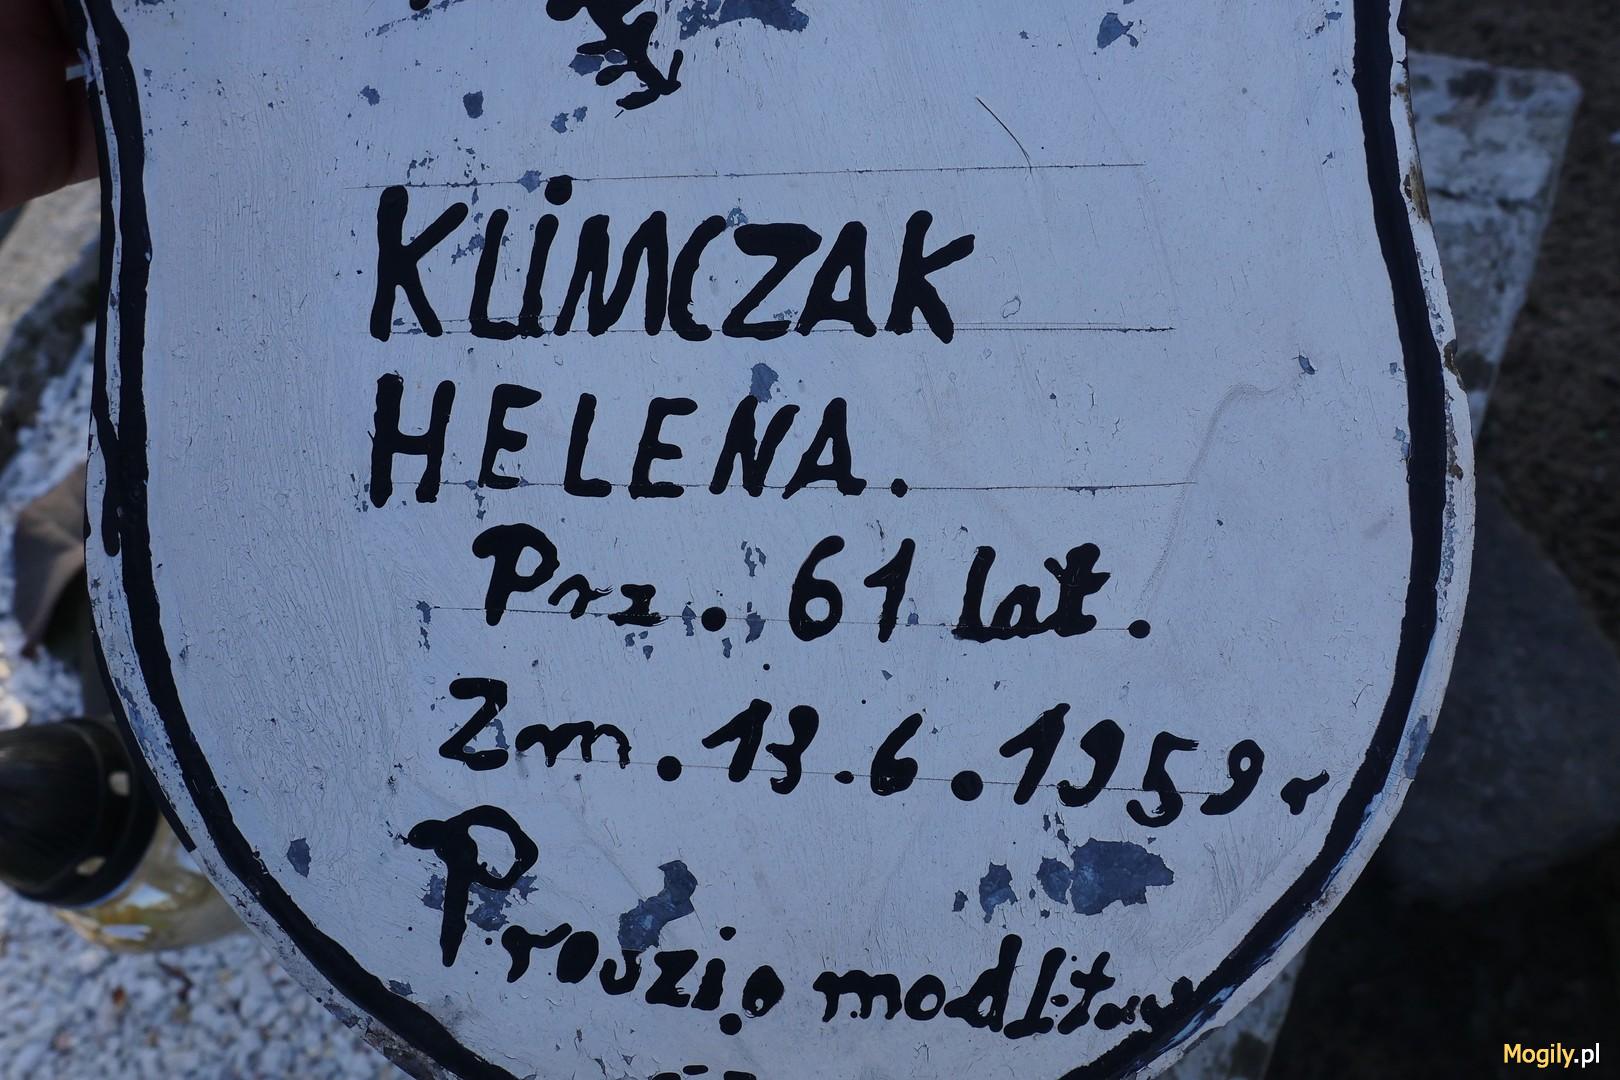 KLIMCZAK
HELENA.
Prz. 61 lat.
Zm. 13.6.1959 r
Proszą modlitwy
Mogily.pl